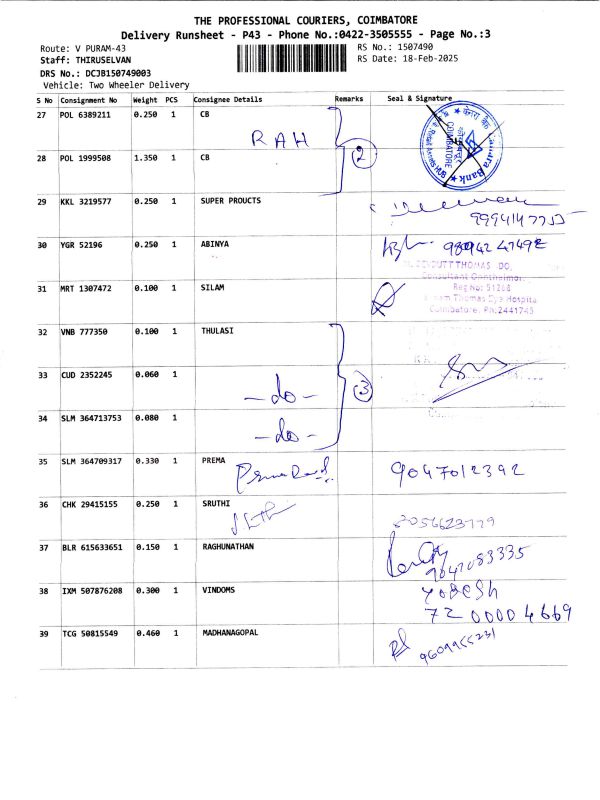 THE PROFESSIONAL COURIERS, COIMBATORE
Delivery Runsheet - P43 - Phone No.:0422-3505555 - Page No.:3
Route: V PURAM-43 RS No.: 1507490
Staff: THIRUSELVAN RS Date: 18-Feb-2025
DRS No.: DCJB150749003
Vehicle: Two Wheeler Delivery
S No Consignment No Weight PCS Consignee Details Remarks Seal & Signature
27 POL 6389211 0.250 1 CB
RAH
2
COIMBATORE
28 POL 1999508 1.350 1 CB
29 KKL 3219577 0.250 1 SUPER PROUCTS
30 YGR 52196 0.250 1 ABINYA
THOMAS
Consultant
31 MRT 1307472 0.100 1 SILAM
Reg No: 51268
Thomas Eye Hospita
Coimbatore. Ph:2441745
32 VNB 777350 0.100 1 THULASI
33 CUD 2352245 0.060 1
- do -
3
34 SLM 364713753 0.080 1
- do -
35 SLM 364709317 0.330 1 PREMA
9047012392
36 CHK 29415155 0.250 1 SRUTHI
37 BLR 615633651 0.150 1 RAGHUNATHAN
38 IXM 507876208 0.300 1 VINDOMS
YOGESH
72 00004669
39 TCG 50815549 0.460 1 MADHANAGOPAL